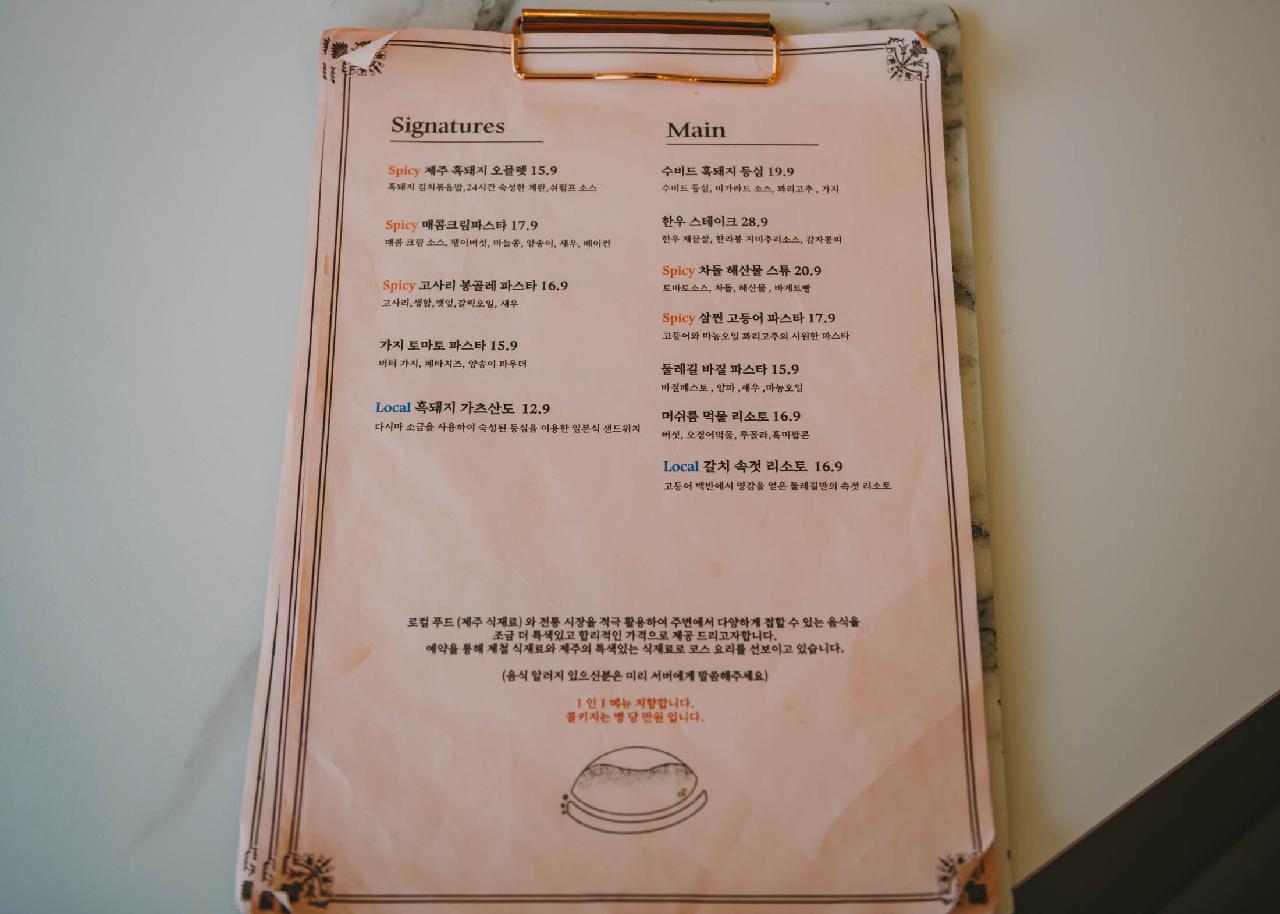 Signatures
Spicy 제주 흑돼지 오믈렛 15.9
흑돼지 김치볶음밥,24시간 숙성한 계란,쉬림프 소스
Spicy 매콤크림파스타 17.9
매콤 크림 소스, 팽이버섯, 마늘쫑, 양송이, 새우, 베이컨
Spicy 고사리 봉골레 파스타 16.9
고사리,생합,깻잎,갈릭오일, 새우
가지 토마토 파스타 15.9
버터 가지, 페타치즈, 양송이 파우더
Local 흑돼지 가츠산도 12.9
다시마 소금을 사용하여 숙성된 등심을 이용한 일본식 샌드위치
Main
수비드 흑돼지 등심 19.9
수비드 등심, 비가라드 소스, 꽈리고추 , 가지
한우 스테이크 28.9
한우 채끝살, 한라봉 치미추리소스, 감자퐁피
Spicy 차돌 해산물 스튜 20.9
토마토소스, 차돌, 해산물 , 바게트빵
Spicy 살찐 고등어 파스타 17.9
고등어와 마늘오일 꽈리고추의 시원한 파스타
둘레길 바질 파스타 15.9
바질페스토 , 양파 ,새우 ,마늘오일
머쉬룸 먹물 리소토 16.9
버섯, 오징어먹물, 루꼴라,흑미팝콘
Local 갈치 속젓 리소토 16.9
고등어 백반에서 영감을 얻은 둘레길만의 속젓 리소토
로컬 푸드 (제주 식재료) 와 전통 시장을 적극 활용하여 주변에서 다양하게 접할 수 있는 음식을
조금 더 특색있고 합리적인 가격으로 제공 드리고자합니다.
예약을 통해 제철 식재료와 제주의 특색있는 식재료로 코스 요리를 선보이고 있습니다.
(음식 알러지 있으신분은 미리 서버에게 말씀해주세요)
1 인 1 메뉴 지향합니다.
콜키지는 병 당 만원 입니다.